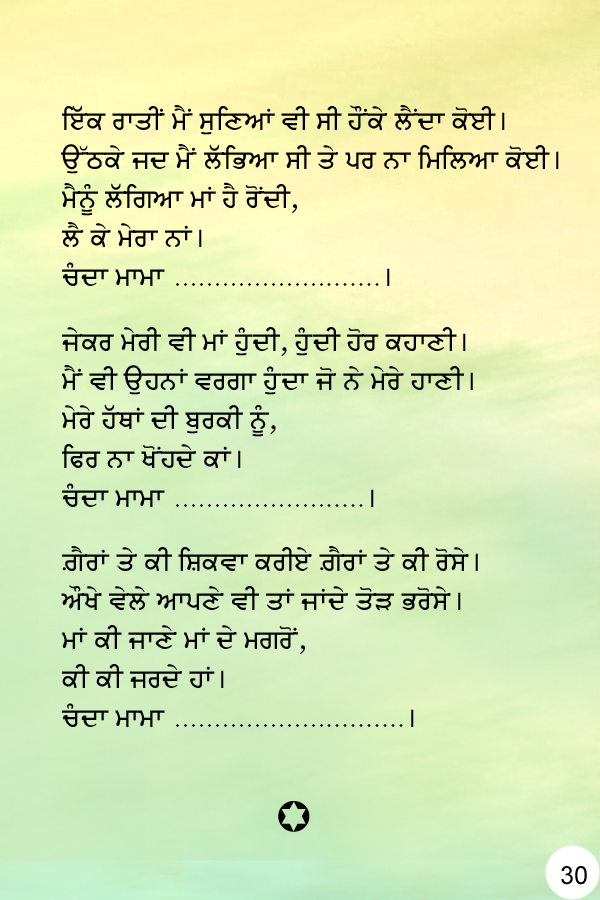 ਇੱਕ ਰਾਤੀਂ ਮੈਂ ਸੁਣਿਆਂ ਵੀ ਸੀ ਹੌਂਕੇ ਲੈਂਦਾ ਕੋਈ।
ਉੱਠਕੇ ਜਦ ਮੈਂ ਲੱਭਿਆ ਸੀ ਤੇ ਪਰ ਨਾ ਮਿਲਿਆ ਕੋਈ।
ਮੈਨੂੰ ਲੱਗਿਆ ਮਾਂ ਹੈ ਰੋਂਦੀ,
ਲੈ ਕੇ ਮੇਰਾ ਨਾਂ।
ਚੰਦਾ ਮਾਮਾ ..........................।
ਜੇਕਰ ਮੇਰੀ ਵੀ ਮਾਂ ਹੁੰਦੀ, ਹੁੰਦੀ ਹੋਰ ਕਹਾਣੀ।
ਮੈਂ ਵੀ ਉਹਨਾਂ ਵਰਗਾ ਹੁੰਦਾ ਜੋ ਨੇ ਮੇਰੇ ਹਾਣੀ।
ਮੇਰੇ ਹੱਥਾਂ ਦੀ ਬੁਰਕੀ ਨੂੰ,
ਫਿਰ ਨਾ ਖੋਂਹਦੇ ਕਾਂ।
ਚੰਦਾ ਮਾਮਾ ........................।
ਗ਼ੈਰਾਂ ਤੇ ਕੀ ਸ਼ਿਕਵਾ ਕਰੀਏ ਗ਼ੈਰਾਂ ਤੇ ਕੀ ਰੋਸੇ।
ਔਖੇ ਵੇਲੇ ਆਪਣੇ ਵੀ ਤਾਂ ਜਾਂਦੇ ਤੋੜ ਭਰੋਸੇ।
ਮਾਂ ਕੀ ਜਾਣੇ ਮਾਂ ਦੇ ਮਗਰੋਂ,
ਕੀ ਕੀ ਜਰਦੇ ਹਾਂ।
ਚੰਦਾ ਮਾਮਾ .............................।
30